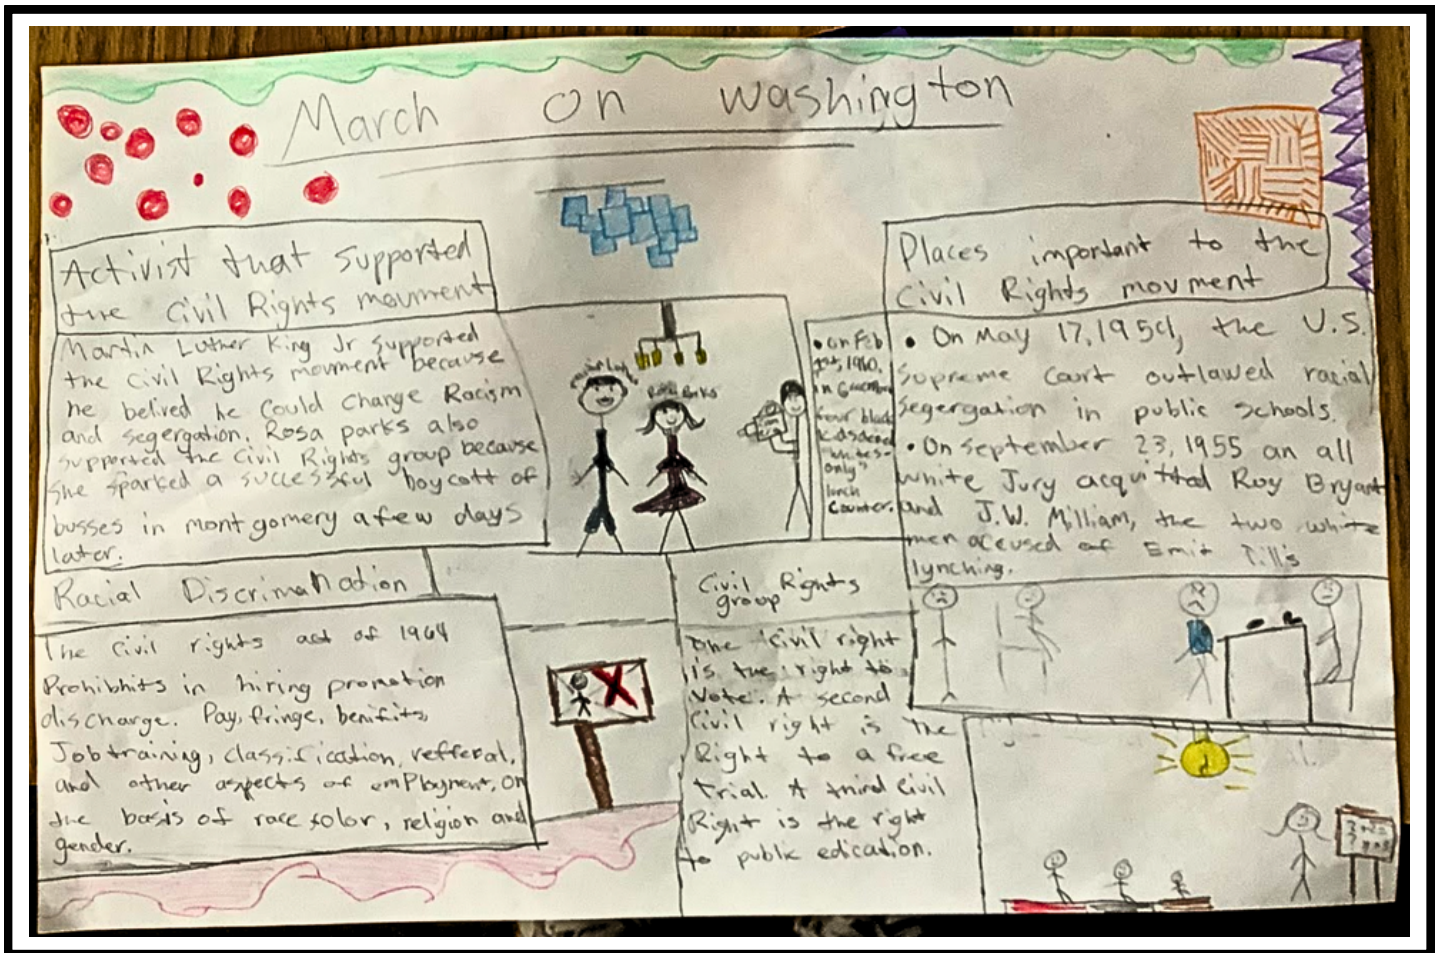 March on Washington
Activist that supported
the Civil Rights movment
Martin Luther King Jr supported
the Civil Rights movment because
he belived he could change Racism
and segergation. Rosa parks also
supported the Civil Rights group because
she sparked a successful boycott of
busses in montgomery a few days
later.
Rosa Parks
• on Feb
1st, 1960,
in
four black
kids
"whites-
only"
lunch
counter.
Places important to the
Civil Rights movment
• On May 17, 1954, the U.S.
Supreme Court outlawed racial
segergation in public schools.
• On september 23, 1955 an all
white Jury acquitted Roy Bryant
and J.W. Milliam, the two white
men accused of Emit Till's
lynching.
Racial Discrimanation
The Civil rights act of 1964
Prohibhits in hiring promotion
discharge. Pay, fringe, benifits,
Job training, classification, refferal,
and other aspects of employment, on
the basis of race color, religion and
gender.
Civil Rights
group
One civil right
is the right to
Vote. A second
Civil right is the
Right to a free
Trial. A third Civil
Right is the right
to public edication.